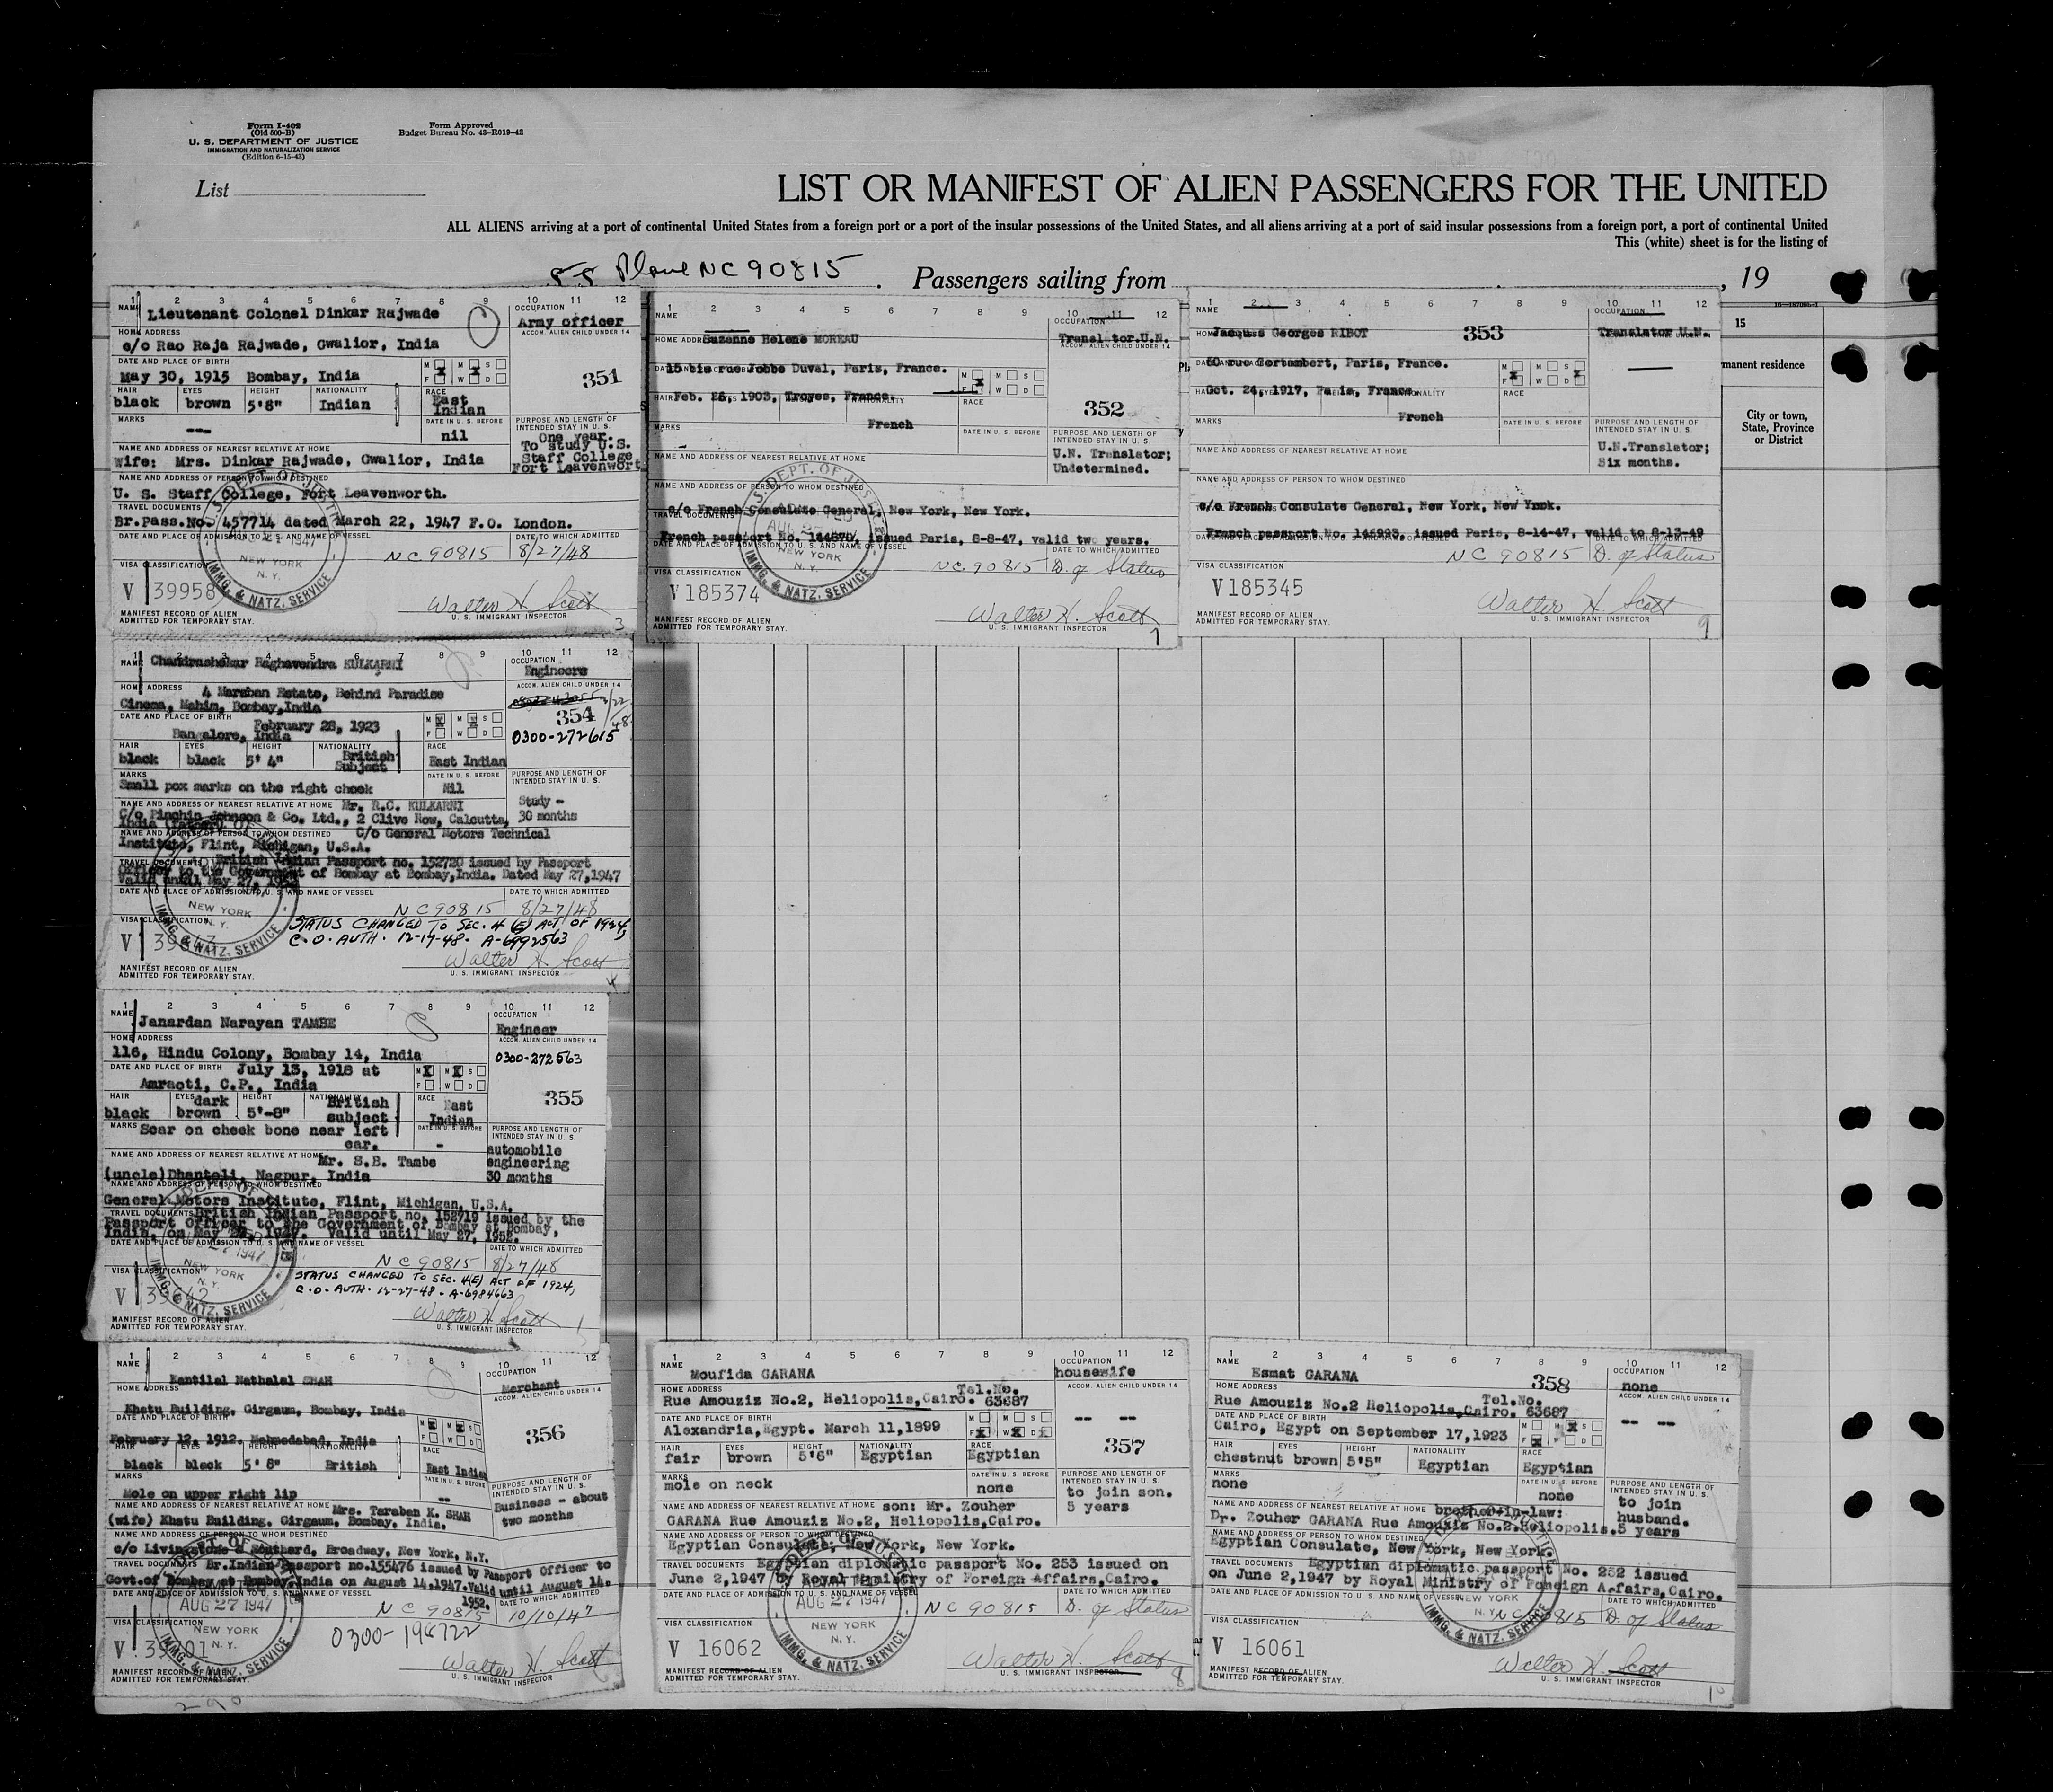 Form I-402
(Old 500-B)
U. S. DEPARTMENT OF JUSTICE
IMMIGRATION AND NATURALIZATION SERVICE
(Edition 6-15-43)
Form Approved
Budget Bureau No. 43-R019-42
List
LIST OR MANIFEST OF ALIEN PASSENGERS FOR THE UNITED
ALL ALIENS arriving at a port of continental United States from a foreign port or a port of the insular possessions of the United States, and all aliens arriving at a port of said insular possessions from a foreign port, a port of continental United
This (white) sheet is for the listing of
SS Plane NC 90815 . Passengers sailing from , 19
15
manent residence
City or town,
State, Province
or District
1 2 3 4 5 6 7 8 9 10 11 12
NAME Lieutenant Colonel Dinkar Rajwade
OCCUPATION
Army officer
HOME ADDRESS
ACCOM. ALIEN CHILD UNDER 14
c/o Rao Raja Rajwade, Gwalior, India
DATE AND PLACE OF BIRTH
May 30, 1915 Bombay, India
M X M X S
F W D
351
HAIR EYES HEIGHT NATIONALITY RACE
black brown 5'8" Indian East Indian
MARKS
---
DATE IN U. S. BEFORE
nil
PURPOSE AND LENGTH OF
INTENDED STAY IN U. S.
One year.
To study U.S.
Staff College
Fort Leavenwort
NAME AND ADDRESS OF NEAREST RELATIVE AT HOME
wife: Mrs. Dinkar Rajwade, Gwalior, India
NAME AND ADDRESS OF PERSON TO WHOM DESTINED
U. S. Staff College, Fort Leavenworth.
TRAVEL DOCUMENTS
Br.Pass.No. 457714 dated March 22, 1947 F.O. London.
DATE AND PLACE OF ADMISSION TO U. S. AND NAME OF VESSEL
DATE TO WHICH ADMITTED
NC 90815 8/27/48
VISA CLASSIFICATION
V 39958
NEW YORK
N. Y.
IMMG. & NATZ. SERVICE
Walter H. Scott
U. S. IMMIGRANT INSPECTOR
MANIFEST RECORD OF ALIEN
ADMITTED FOR TEMPORARY STAY.
3
1 2 3 4 5 6 7 8 9 10 11 12
NAME
OCCUPATION
HOME ADDRESS Suzanne Helene MOREAU
Translator.U.N.
ACCOM. ALIEN CHILD UNDER 14
15 bis rue Jobbe Duval, Paris, France.
M M S
F X W D
Feb. 26, 1903, Troyes, France.
RACE
352
MARKS
French
DATE IN U. S. BEFORE
PURPOSE AND LENGTH OF
INTENDED STAY IN U. S.
U.N. Translator;
Undetermined.
NAME AND ADDRESS OF NEAREST RELATIVE AT HOME
NAME AND ADDRESS OF PERSON TO WHOM DESTINED
c/o French Consulate General, New York, New York.
TRAVEL DOCUMENTS
French passport No. issued Paris, 8-8-47, valid two years.
DATE AND PLACE OF ADMISSION TO U. S. AND NAME OF VESSEL
DATE TO WHICH ADMITTED
NC 90815 D. of Status
VISA CLASSIFICATION
V 185374
U.S. DEPT. OF JUSTICE
AUG 27
NEW YORK
N. Y.
IMMG. & NATZ. SERVICE
Walter H. Scott
U. S. IMMIGRANT INSPECTOR
MANIFEST RECORD OF ALIEN
ADMITTED FOR TEMPORARY STAY.
7
1 2 3 4 5 6 7 8 9 10 11 12
NAME
OCCUPATION
Jacques Georges RIBOT
353
Translator U.N.
60 rue Cortambert, Paris, France.
M X M S X
F W D
Oct. 24, 1917, Paris, France
RACE
MARKS
French
DATE IN U. S. BEFORE
PURPOSE AND LENGTH OF
INTENDED STAY IN U. S.
U.N.Translator;
Six months.
NAME AND ADDRESS OF NEAREST RELATIVE AT HOME
NAME AND ADDRESS OF PERSON TO WHOM DESTINED
c/o French Consulate General, New York, New York.
French passport No. 146993, issued Paris, 8-14-47, valid to 8-13-49
NC 90815 D. of Status
VISA CLASSIFICATION
V 185345
Walter H. Scott
U. S. IMMIGRANT INSPECTOR
MANIFEST RECORD OF ALIEN
ADMITTED FOR TEMPORARY STAY.
9
1 2 3 4 5 6 7 8 9 10 11 12
NAME Chandrashekar Raghavendra KULKARNI
OCCUPATION
Engineers
HOME ADDRESS 4 Marzban Estate, Behind Paradise
ACCOM. ALIEN CHILD UNDER 14
Cinema, Mahim, Bombay,India
DATE AND PLACE OF BIRTH
February 28, 1923
Bangalore, India
M X M X S
F W D
354
0300-272615
HAIR EYES HEIGHT NATIONALITY RACE
black black 5' 4" British Subject East Indian
MARKS
Small pox marks on the right cheek
DATE IN U. S. BEFORE
Nil
PURPOSE AND LENGTH OF
INTENDED STAY IN U. S.
Study -
30 months
NAME AND ADDRESS OF NEAREST RELATIVE AT HOME Mr. R.C. KULKARNI
C/o Pinchin Johnson & Co. Ltd., 2 Clive Row, Calcutta,
India (father)
NAME AND ADDRESS OF PERSON TO WHOM DESTINED C/o General Motors Technical
Institute, Flint, Michigan, U.S.A.
TRAVEL DOCUMENTS British Indian Passport no. 152720 issued by Passport
Officer to the Government of Bombay at Bombay,India. Dated May 27,1947
Valid until May 27, 1952
DATE AND PLACE OF ADMISSION TO U. S. AND NAME OF VESSEL
DATE TO WHICH ADMITTED
NC 90815 8/27/48
VISA CLASSIFICATION
STATUS CHANGED TO SEC. 4 (E) ACT OF 1924,
C.O. AUTH. 12-17-48. A-6992563
V
NEW YORK
N. Y.
IMMG. & NATZ. SERVICE
Walter H. Scott
U. S. IMMIGRANT INSPECTOR
MANIFEST RECORD OF ALIEN
ADMITTED FOR TEMPORARY STAY.
1 2 3 4 5 6 7 8 9 10 11 12
NAME Janardan Narayan TAMBE
OCCUPATION
Engineer
HOME ADDRESS
ACCOM. ALIEN CHILD UNDER 14
116, Hindu Colony, Bombay 14, India
0300-272563
DATE AND PLACE OF BIRTH July 13, 1918 at
Amraoti, C.P., India
M X M X S
F W D
355
HAIR EYES HEIGHT NATIONALITY RACE
black dark brown 5'-8" British subject East Indian
MARKS Scar on cheek bone near left
ear.
DATE IN U. S. BEFORE
-
PURPOSE AND LENGTH OF
INTENDED STAY IN U. S.
automobile
engineering
30 months
NAME AND ADDRESS OF NEAREST RELATIVE AT HOME Mr. S.B. Tambe
(uncle)Dhantoli, Nagpur, India
NAME AND ADDRESS OF PERSON TO WHOM DESTINED
General Motors Institute, Flint, Michigan, U.S.A.
TRAVEL DOCUMENTS British Indian Passport no. 152719 issued by the
Passport Officer to the Government of Bombay at Bombay,
India, on May 27, 1947. Valid until May 27, 1952.
DATE AND PLACE OF ADMISSION TO U. S. AND NAME OF VESSEL
DATE TO WHICH ADMITTED
NC 90815 8/27/48
VISA CLASSIFICATION
STATUS CHANGED TO SEC. 4(E) ACT OF 1924,
C.O. AUTH. 12-27-48. A-6984663
V 39642
NEW YORK
N. Y.
IMMG. & NATZ. SERVICE
Walter H. Scott
U. S. IMMIGRANT INSPECTOR
MANIFEST RECORD OF ALIEN
ADMITTED FOR TEMPORARY STAY.
1 2 3 4 5 6 7 8 9 10 11 12
NAME
OCCUPATION
Kantilal Nathalal SHAH
Merchant
HOME ADDRESS
ACCOM. ALIEN CHILD UNDER 14
Khatu Building, Girgaum, Bombay, India
DATE AND PLACE OF BIRTH
M X M X S
F W D
356
February 12, 1912. Mehmedabad, India
HAIR EYES HEIGHT NATIONALITY RACE
black black 5' 8" British East Indian
MARKS
Mole on upper right lip
DATE IN U. S. BEFORE
--
PURPOSE AND LENGTH OF
INTENDED STAY IN U. S.
Business - about
two months
NAME AND ADDRESS OF NEAREST RELATIVE AT HOME Mrs. Taraben K. SHAH
(wife) Khatu Building, Girgaum, Bombay, India.
NAME AND ADDRESS OF PERSON TO WHOM DESTINED
c/o Livingstone & Southard, Broadway, New York, N.Y.
TRAVEL DOCUMENTS Br.Indian Passport no.155476 issued by Passport Officer to
Govt.of Bombay at Bombay,India on August 14,1947.Valid until August 14,
1952.
DATE AND PLACE OF ADMISSION TO U. S. AND NAME OF VESSEL
DATE TO WHICH ADMITTED
AUG 27 1947
NC 90815 10/10/47
VISA CLASSIFICATION
0300-198722
V
NEW YORK
N. Y.
IMMG. & NATZ. SERVICE
Walter H. Scott
U. S. IMMIGRANT INSPECTOR
MANIFEST RECORD OF ALIEN
ADMITTED FOR TEMPORARY STAY.
290
1 2 3 4 5 6 7 8 9 10 11 12
NAME
Moufida GARANA
OCCUPATION
housewife
HOME ADDRESS Tel.No.
ACCOM. ALIEN CHILD UNDER 14
Rue Amouziz No.2, Heliopolis,Cairo. 63687
-- --
DATE AND PLACE OF BIRTH
Alexandria,Egypt. March 11,1899
M M S
F X W X D
357
HAIR EYES HEIGHT NATIONALITY RACE
fair brown 5'6" Egyptian Egyptian
MARKS
mole on neck
DATE IN U. S. BEFORE
none
PURPOSE AND LENGTH OF
INTENDED STAY IN U. S.
to join son.
5 years
NAME AND ADDRESS OF NEAREST RELATIVE AT HOME son: Mr. Zouher
GARANA Rue Amouziz No.2, Heliopolis,Cairo.
NAME AND ADDRESS OF PERSON TO WHOM DESTINED
Egyptian Consulate, New York, New York.
TRAVEL DOCUMENTS Egyptian diplomatic passport No. 253 issued on
June 2,1947 by Royal Ministry of Foreign Affairs,Cairo.
DATE AND PLACE OF ADMISSION TO U. S. AND NAME OF VESSEL
DATE TO WHICH ADMITTED
AUG 27 1947
NC 90815 D. of Status
VISA CLASSIFICATION
V 16062
NEW YORK
N. Y.
IMMG. & NATZ. SERVICE
Walter H. Scott
U. S. IMMIGRANT INSPECTOR
MANIFEST RECORD OF ALIEN
ADMITTED FOR TEMPORARY STAY.
8
1 2 3 4 5 6 7 8 9 10 11 12
NAME
Esmat GARANA
358
OCCUPATION
none
HOME ADDRESS Tel.No.
ACCOM. ALIEN CHILD UNDER 14
Rue Amouziz No.2 Heliopolis,Cairo. 63687
-- --
DATE AND PLACE OF BIRTH
Cairo, Egypt on September 17,1923
M M X S
F X W D
HAIR EYES HEIGHT NATIONALITY RACE
chestnut brown 5'5" Egyptian Egyptian
MARKS
none
DATE IN U. S. BEFORE
none
PURPOSE AND LENGTH OF
INTENDED STAY IN U. S.
to join
husband.
5 years
NAME AND ADDRESS OF NEAREST RELATIVE AT HOME brother-in-law:
Dr. Zouher GARANA Rue Amouziz No.2,Heliopolis.
NAME AND ADDRESS OF PERSON TO WHOM DESTINED
Egyptian Consulate, New York, New York.
TRAVEL DOCUMENTS Egyptian diplomatic passport No. 252 issued
on June 2,1947 by Royal Ministry of Foreign Affairs,Cairo.
DATE AND PLACE OF ADMISSION TO U. S. AND NAME OF VESSEL
DATE TO WHICH ADMITTED
NC 90815 D. of Status
VISA CLASSIFICATION
V 16061
NEW YORK
N. Y.
IMMG. & NATZ. SERVICE
Walter H. Scott
U. S. IMMIGRANT INSPECTOR
MANIFEST RECORD OF ALIEN
ADMITTED FOR TEMPORARY STAY.
10